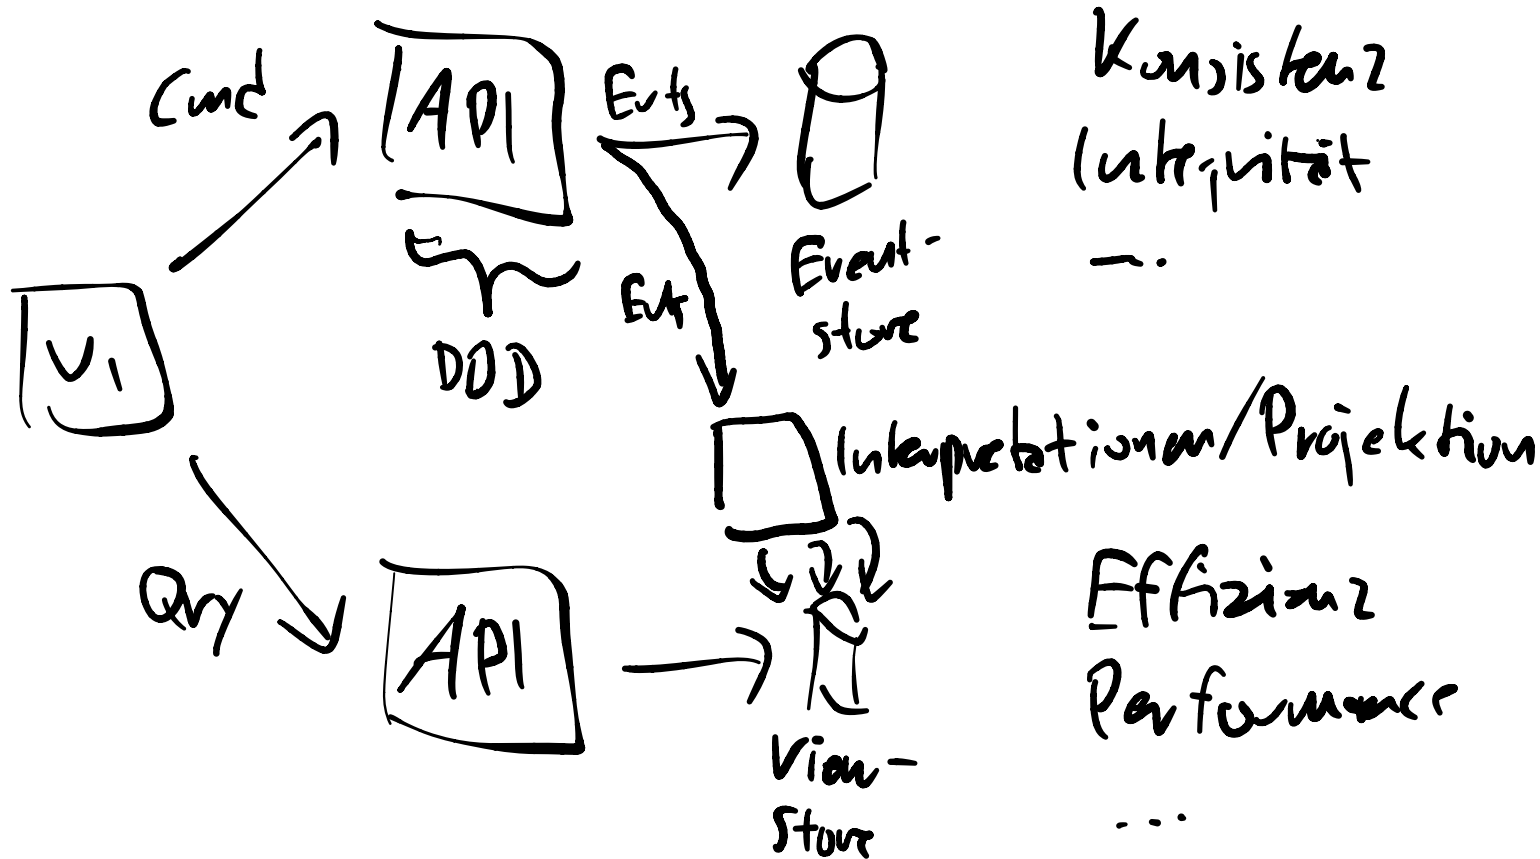 Cmd
API
Evts
Konsistenz
Integrität
...
Event-
store
Evts
DDD
UI
Interpretationen/Projektion
Qry
API
Effizienz
Performance
...
View-
Store